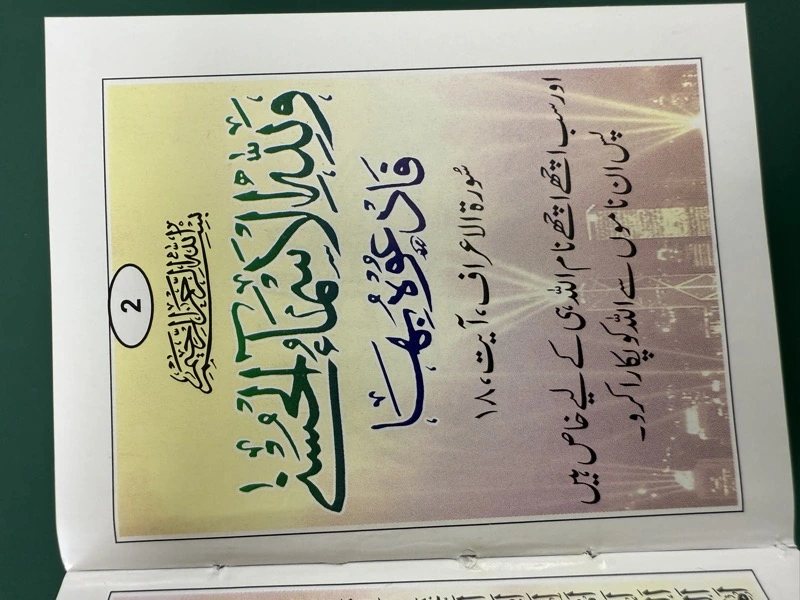 2
بسم الله الرحمن الرحيم
وَلِلّٰهِ الْاَسْمَآءُ الْحُسْنٰى
فَادْعُوْهُ بِهَا
سُورة الاعراف، آیت، ۱۸
اور سب اچھے اچھے نام اللہ ہی کے لیے خاص ہیں
پس ان ناموں سے اللہ کو پکارا کرو۔